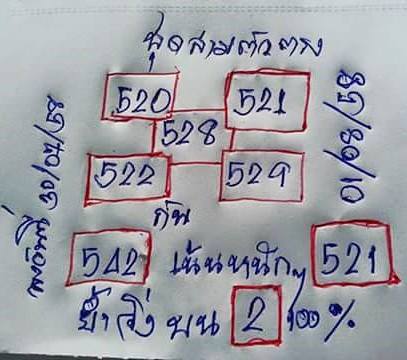 ชุดสามตัวตรง
520 521
528
522 529
กัน
542 เน้นหนักๆ 521
ย้ำวิ่งบน 2 100%
30/07/58
01/08/58